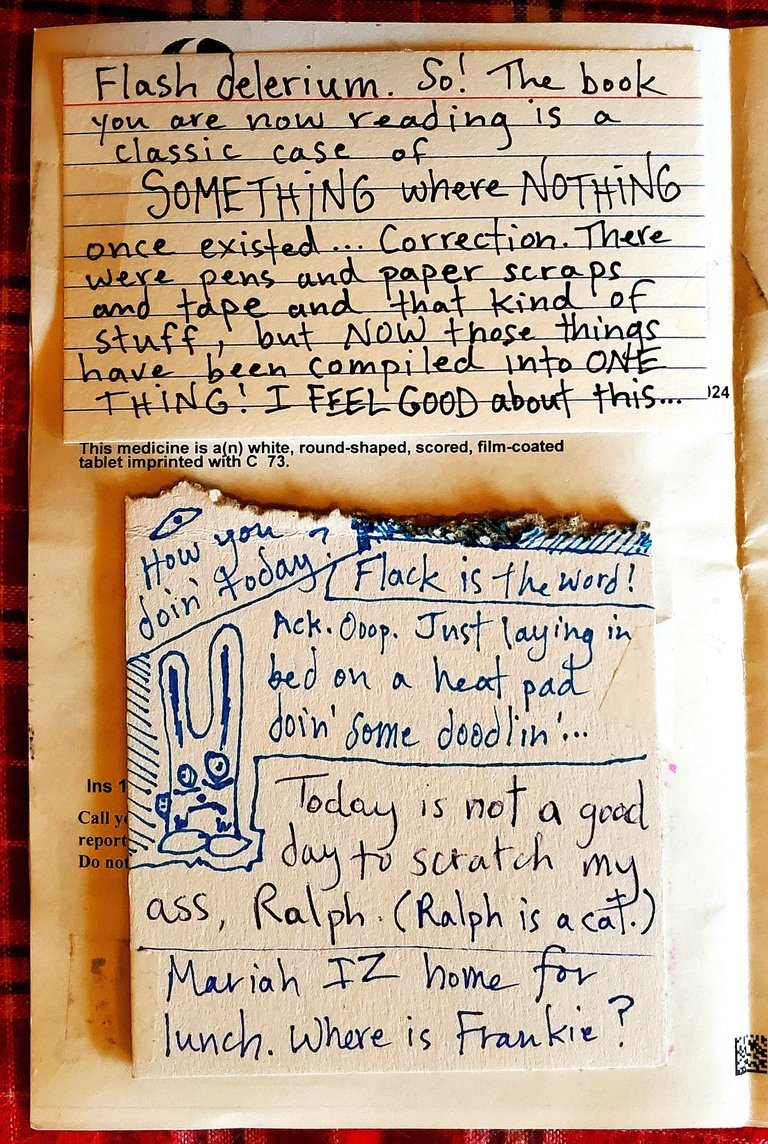 Flash delerium. So! The book
you are now reading is a
classic case of
SOMETHING where NOTHING
once existed... Correction. There
were pens and paper scraps
and tape and that kind of
stuff, but NOW those things
have been compiled into ONE
THING! I FEEL GOOD about this...
024
This medicine is a(n) white, round-shaped, scored, film-coated
tablet imprinted with C 73.
How you
doin' today?
Flack is the word!
Ack. Ooop. Just laying in
bed on a heat pad
doin' some doodlin'...
Ins 1
Today is not a good
Call
day to scratch my
report
Do not
ass, Ralph. (Ralph is a cat.)
Mariah IZ home for
lunch. Where is Frankie?